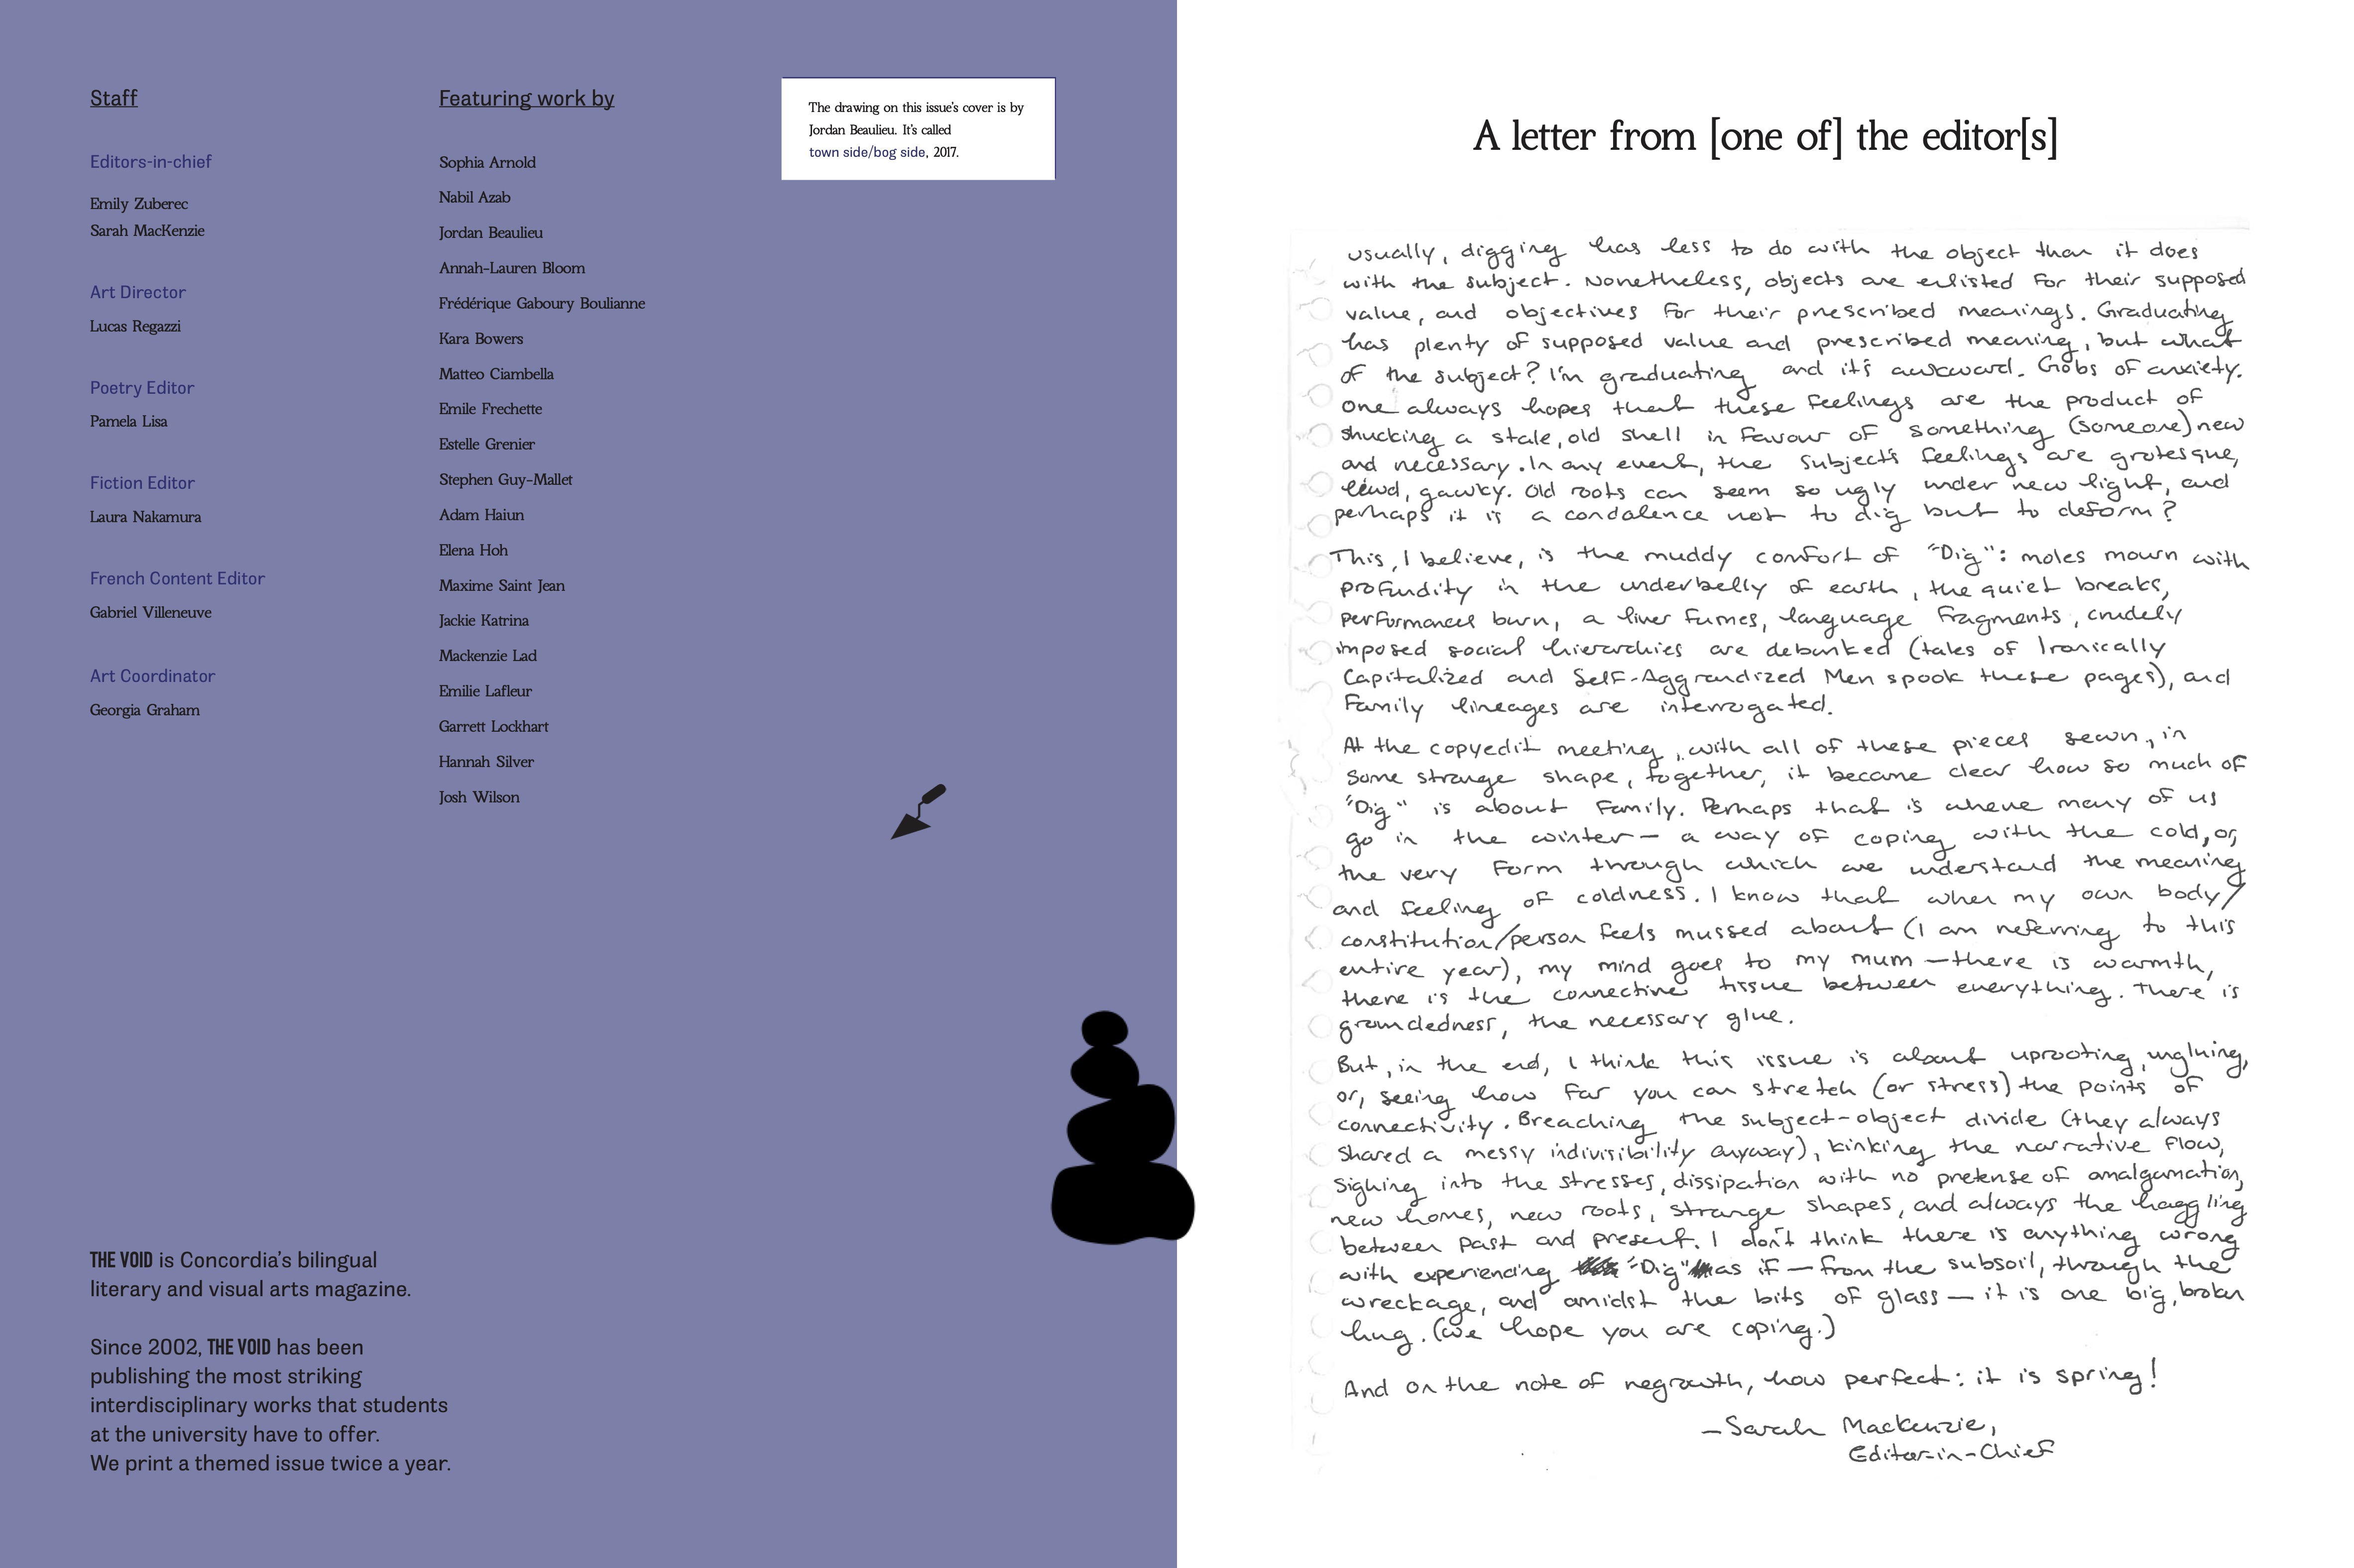 Staff
Editors-in-chief
Emily Zuberec
Sarah MacKenzie
Art Director
Lucas Regazzi
Poetry Editor
Pamela Lisa
Fiction Editor
Laura Nakamura
French Content Editor
Gabriel Villeneuve
Art Coordinator
Georgia Graham
Featuring work by
Sophia Arnold
Nabil Azab
Jordan Beaulieu
Annah-Lauren Bloom
Frédérique Gaboury Boulianne
Kara Bowers
Matteo Ciambella
Emile Frechette
Estelle Grenier
Stephen Guy-Mallet
Adam Haiun
Elena Hoh
Maxime Saint Jean
Jackie Katrina
Mackenzie Lad
Emilie Lafleur
Garrett Lockhart
Hannah Silver
Josh Wilson
The drawing on this issue's cover is by
Jordan Beaulieu. It's called
town side/bog side, 2017.
THE VOID is Concordia's bilingual
literary and visual arts magazine.
Since 2002, THE VOID has been
publishing the most striking
interdisciplinary works that students
at the university have to offer.
We print a themed issue twice a year.
A letter from [one of] the editor[s]
usually, digging has less to do with the object than it does
with the subject. Nonetheless, objects are enlisted for their supposed
value, and objectives for their prescribed meanings. Graduating
has plenty of supposed value and prescribed meaning, but what
of the subject? I'm graduating and it's awkward. Gobs of anxiety.
One always hopes that these feelings are the product of
shucking a stale, old shell in favour of something (someone) new
and necessary. In any event, the subject's feelings are grotesque,
lewd, gawky. Old roots can seem so ugly under new light, and
perhaps it is a condolence not to dig but to deform?
This, I believe, is the muddy comfort of "Dig": moles mourn with
profundity in the underbelly of earth, the quiet breaks,
performances burn, a liver fumes, language fragments, crudely
imposed social hierarchies are debunked (tales of Ironically
Capitalized and Self-Aggrandized Men spook these pages), and
Family lineages are interrogated.
At the copyedit meeting, with all of these pieces sewn, in
some strange shape, together, it became clear how so much of
"Dig" is about family. Perhaps that is where many of us
go in the winter — a way of coping with the cold, or,
the very form through which we understand the meaning
and feeling of coldness. I know that when my own body/
constitution/person feels mussed about (I am referring to this
entire year), my mind goes to my mum — there is warmth,
there is the connective tissue between everything. There is
groundedness, the necessary glue.
But, in the end, I think this issue is about uprooting, ungluing,
or, seeing how far you can stretch (or stress) the points of
connectivity. Breaching the subject-object divide (they always
shared a messy indivisibility anyway), kinking the narrative flow,
sighing into the stresses, dissipation with no pretense of amalgamation,
new homes, new roots, strange shapes, and always the haggling
between past and present. I don't think there is anything wrong
with experiencing "Dig" as if — from the subsoil, through the
wreckage, and amidst the bits of glass — it is one big, broken
hug. (We hope you are coping.)
And on the note of regrowth, how perfect: it is spring!
—Sarah Mackenzie,
Editor-in-Chief